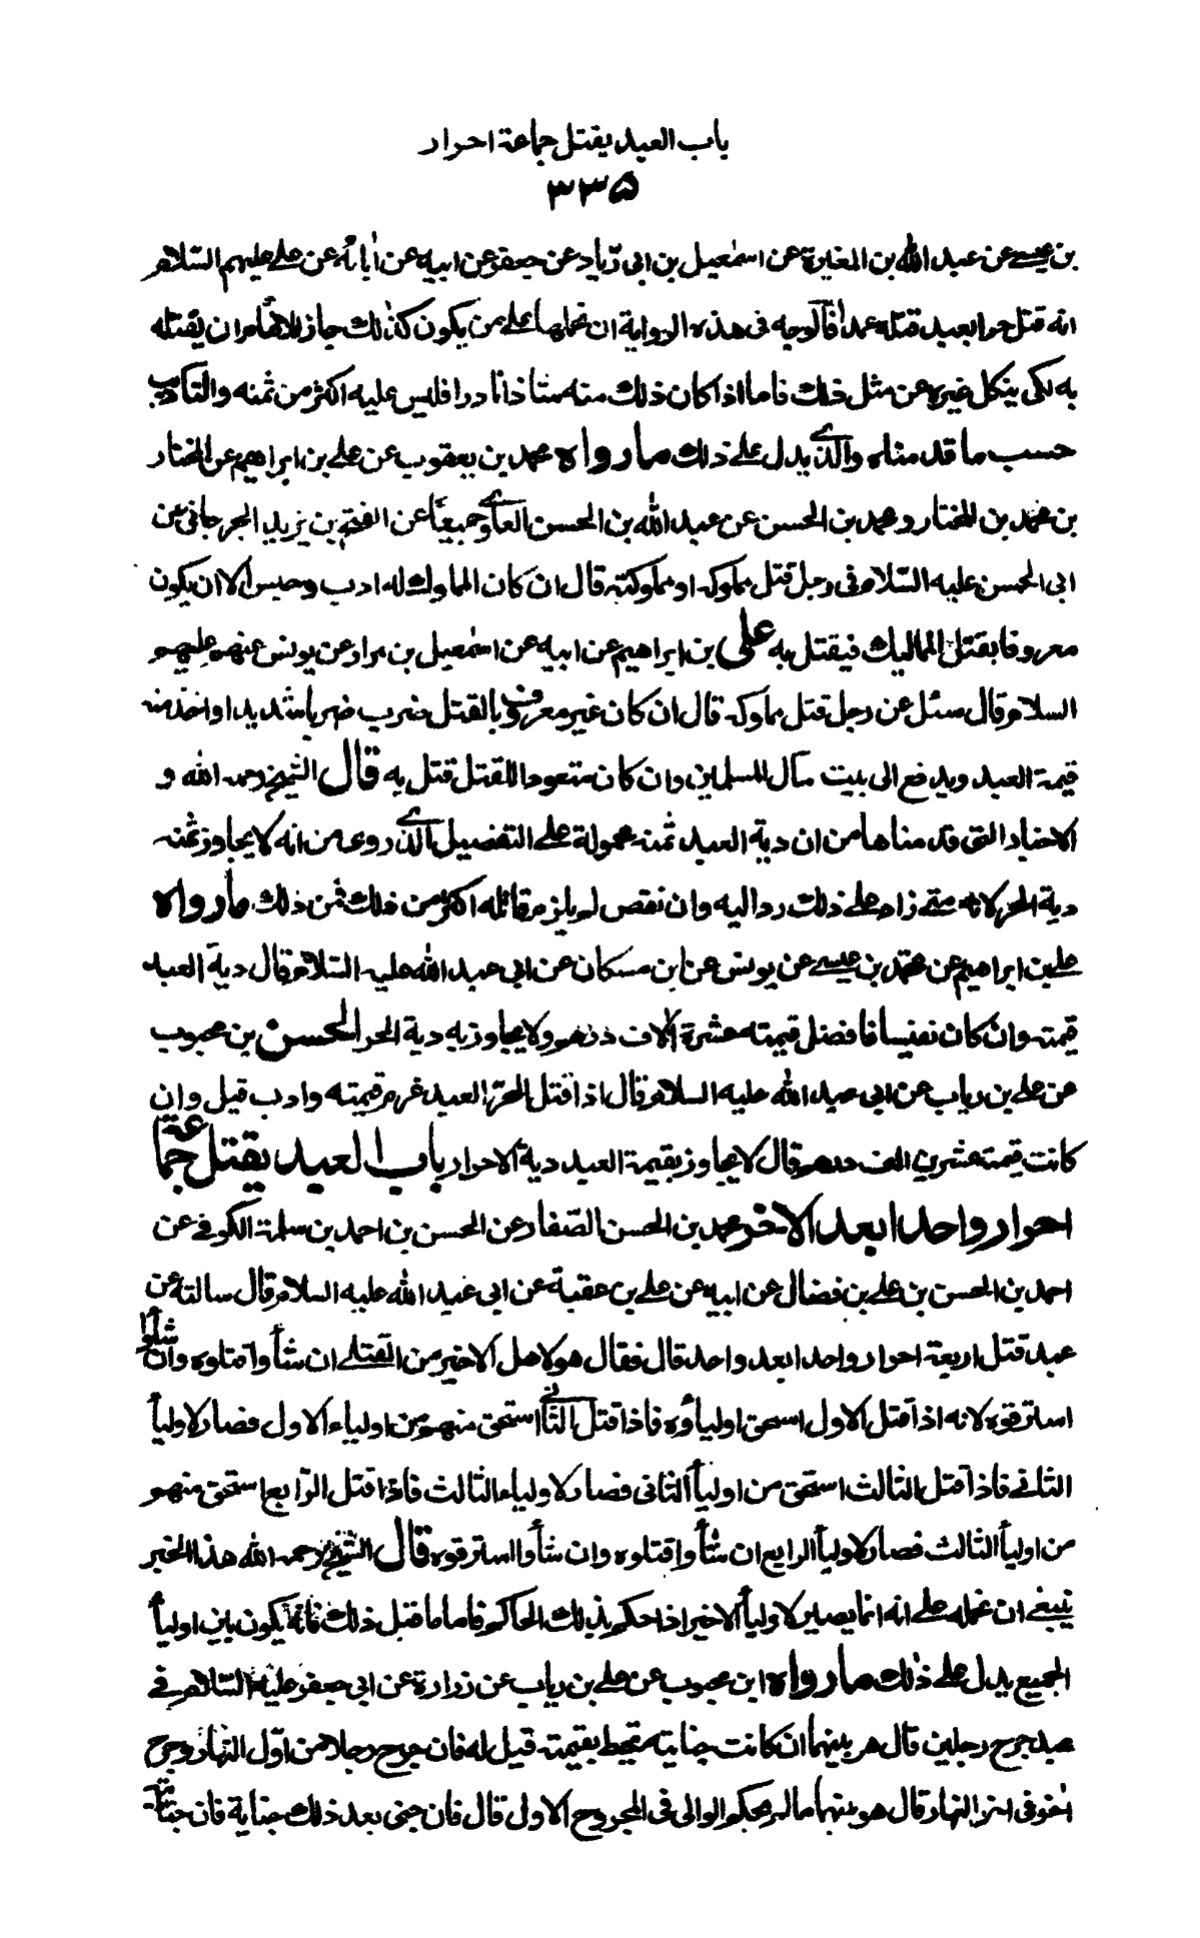 باب العبد يقتل جماعة احرار
٣٣٥
بن عيسى عن عبد الله بن المغيرة عن اسمعيل بن ابى زياد عن جعفر عن ابيه عن اٰبائه عن على عليهم السّلام
انه قتل حرا بعبد قتله عمدا فالوجه فى هذه الرواية ان نحملها على من يكون كذلك جاز للامام ان يقتله
به لكى ينكل غيره عن مثل ذلك فاما اذا كان ذلك منه شاذا نادرا فليس عليه اكثر من ثمنه والتاديب
حسب ما قدمناه والذى يدل على ذلك ما رواه محمد بن يعقوب عن على بن ابراهيم عن المختار
بن محمد بن المختار و محمد بن الحسن عن عبد الله بن الحسن العلوى جميعا عن الفتح بن يزيد الجرجانى عن
ابى الحسن عليه السّلام فى رجل قتل مملوكه او مملوكته قال ان كان المملوك له ادب وحبس الا ان يكون
معروفا بقتل المماليك فيقتل به على بن ابراهيم عن ابيه عن اسمعيل بن مراد عن يونس عنهم عليهم
السلام قال سئل عن رجل قتل مملوكه قال ان كان غير معروف بالقتل ضرب ضربا شديدا واخذ منه
قيمة العبد ويدفع الى بيت مال المسلمين وان كان متعودا للقتل قتل به قال الشيخ رحمه الله و
الاخبار التى قدمناها من ان دية العبد ثمنه محمولة على التفصيل الذى روى من انه لا يجاوز ثمنه
دية الحر لانه متى زاد على ذلك رد اليه وان نقص لم يلزم قاتله اكثر من ذلك فمن ذلك ما رواه
على بن ابراهيم عن محمد بن عيسى عن يونس عن ابن مسكان عن ابى عبد الله عليه السّلام قال دية العبد
قيمته وان كان نفيسا فافضل قيمته عشرة اٰلاف درهم ولا يجاوز به دية الحر الحسن بن محبوب
عن على بن رياب عن ابى عبد الله عليه السلام قال اذا قتل الحرّ العبد غرم قيمته وادب قيل وان
كانت قيمته عشرين الف درهم قال لا يجاوز بقيمة العبد دية الاحرار باب العبد يقتل جماعة
احرار واحدا بعد الاخر محمد بن الحسن الصّفار عن الحسن بن احمد بن سلمة الكوفى عن
احمد بن الحسن بن على بن فضال عن ابيه عن على بن عقبة عن ابى عبد الله عليه السلام قال سالته عن
عبد قتل اربعة احرار واحدا بعد واحد قال فقال هو لاهل الاخير من القتلى ان شأوا قتلوه وان شاؤا
استرقوه لانه اذا قتل الاول استحق اولياؤه فاذا قتل الثانى استحق منهم من اولياء الاول فصار لاوليأ
الثانى فاذا قتل الثالث استحق من اوليأ الثانى فصار لاولياء الثالث فاذا قتل الرّابع استحق منهم
من اوليأ الثالث فصار لاوليأ الرابع ان شأوا قتلوه وان شأوا استرقوه قال الشيخ رحمه الله هذا الخبر
ينبغى ان نحمله على انه انما يصير لاوليأ الاخير اذا حكم بذلك الحاكم فاما ما قبل ذلك فانه يكون بين اوليأ
الجميع يدل على ذلك ما رواه ابن محبوب عن على بن رياب عن زرارة عن ابى جعفر عليه السّلام فى
عبد جرح رجلين قال هو بينهما ان كانت جنايته تحيط بقيمته قيل له فان جرح رجلا من اوّل النهار وجرح
اٰخر فى اٰخر النهار قال هو بينهما ما لم يحكم الوالى فى المجروح الاول قال فان جنى بعد ذلك جناية فان جنايته